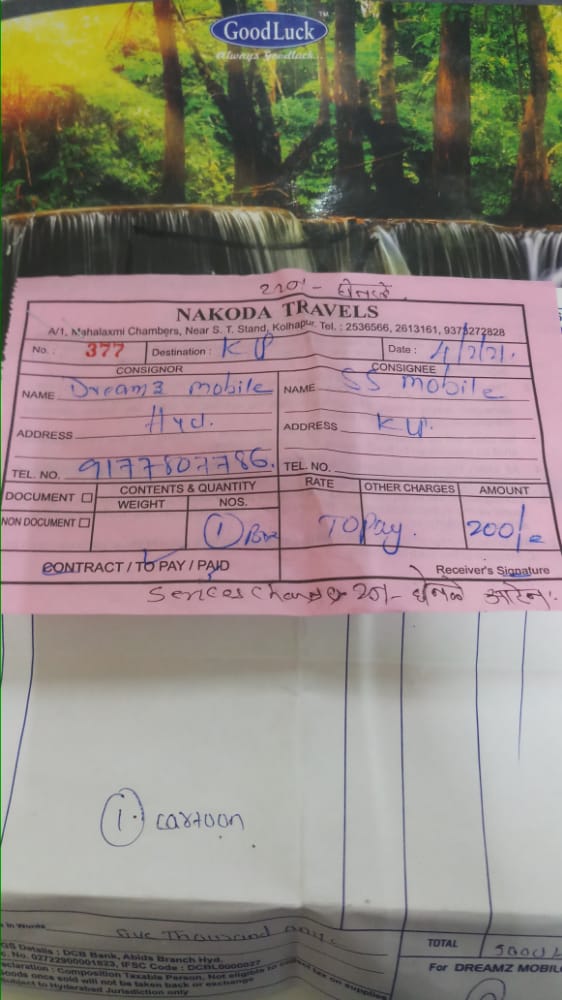 GoodLuck
Always Goodluck...
220/- घेतले
NAKODA TRAVELS
A/1, Mahalaxmi Chambers, Near S. T. Stand, Kolhapur, Tel. : 2536566, 2613161, 9373272828
No. : 377 Destination : KP Date : 4/2/21.
CONSIGNOR CONSIGNEE
NAME Dreamz mobile NAME SS mobile
ADDRESS Hyd. ADDRESS KP.
TEL. NO. 9177807786. TEL. NO.
DOCUMENT CONTENTS & QUANTITY RATE OTHER CHARGES AMOUNT
WEIGHT NOS.
NON DOCUMENT 1 Box TO Pay. 200/-
CONTRACT / TO PAY / PAID Receiver's Signature
20/- घेतले आहेत.
1. cartoon
in Words five Thousand only.
TOTAL 5000/-
GS Details : DCB Bank, Abids Branch Hyd.
c. No. 02722900001823, IFSC Code : DCBL0000027
eclaration : Composition Taxable Person, Not eligible to collect tax on supplies
oods once sold will not be taken back or exchange
ubject to Hyderabad Jurisdiction only
For DREAMZ MOBIL